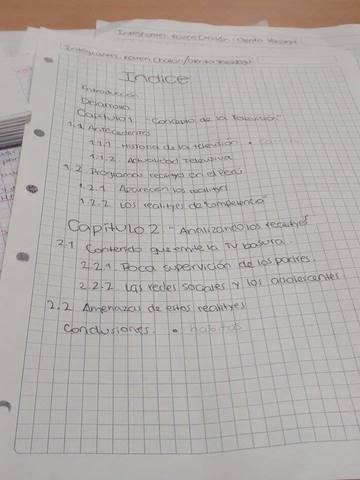 Integrantes: Karen Chacón /
Indice
Introducción
Desarrollo
Capítulo 1 - Concepto de la Televisión
1.1 Antecedentes
1.1.1 Historia de la televisión
1.1.2 Actualidad Televisiva
1.2 Programas realitys en el Perú
1.2.1 Aparecen los realitys
1.2.2 Los realityes de competencia
Capítulo 2 - Analizando los realityes
2.1 Contenido que emite la TV basura.
2.2.1 Poca supervisión de los padres.
2.2.2 Las redes sociales y los adolescentes.
2.2 Amenazas de estos realityes.
Conclusiones.